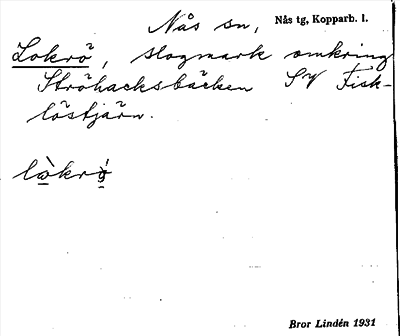 Nås sn, Nås tg, Kopparb. l.
Lokrö, slogmark omkring
Ströhacksbäcken SV Fisk-
löstjärn.
Bror Lindén 1931